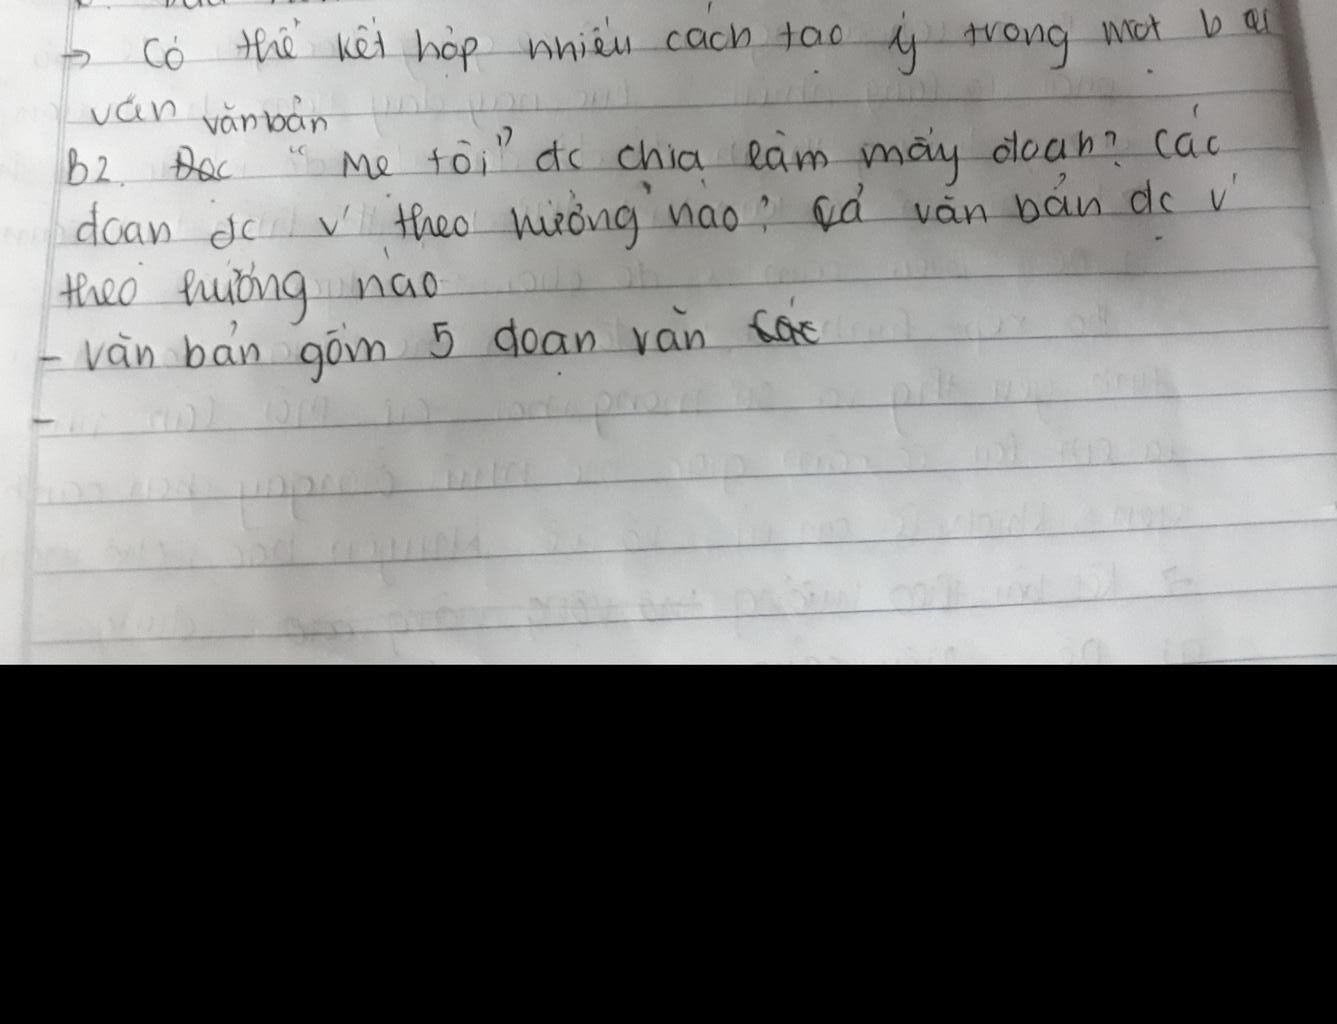 → Có thể kết hợp nhiều cách tạo ý trong một bài
văn văn bản
B2. Đọc "Mẹ tôi" đc chia làm mấy đoạn? Các
đoạn đc v' theo hướng nào? Cả văn bản đc v'
theo hướng nào
- Văn bản gồm 5 đoạn văn các
-